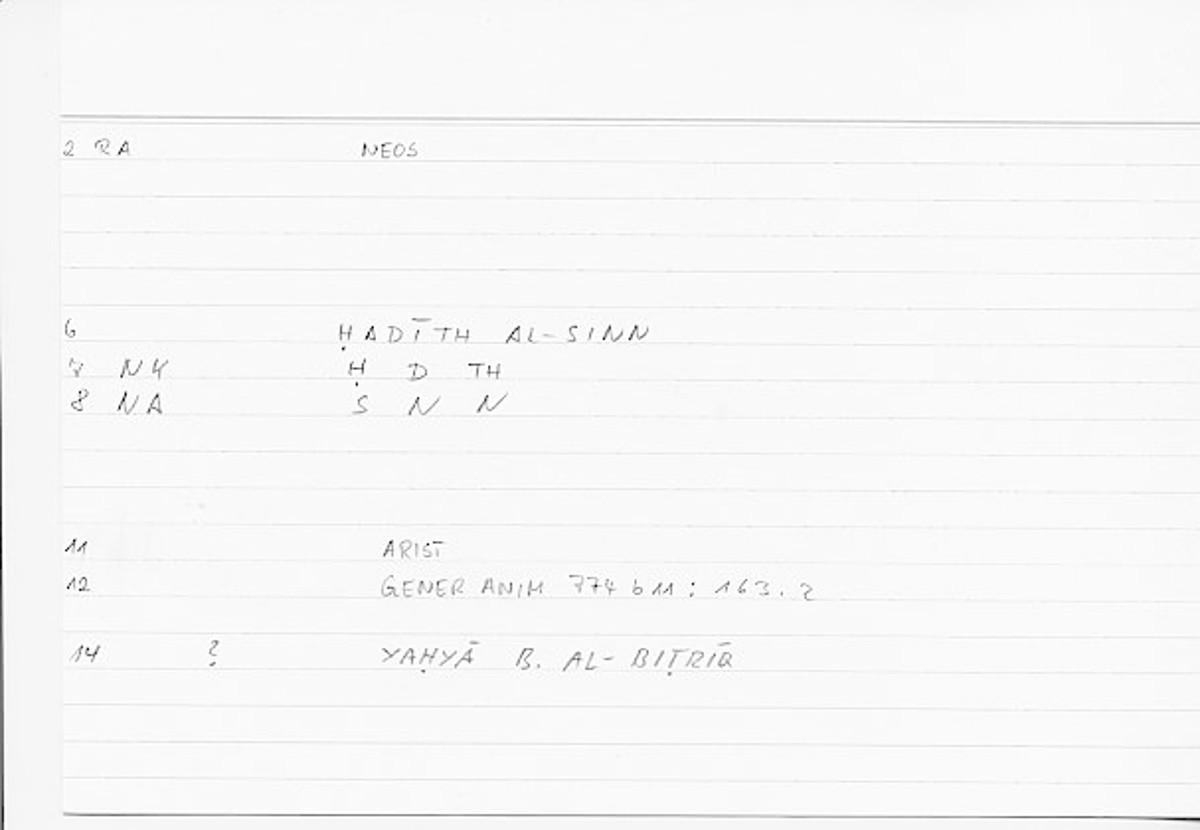 2 RA NEOS
6 ḤADĪTH AL-SINN
7 NK Ḥ D TH
8 NA S N N
11 ARIST
12 GENER ANIM 774 b 11 : 163.2
14 ? YAḤYĀ B. AL-BIṬRĪQ